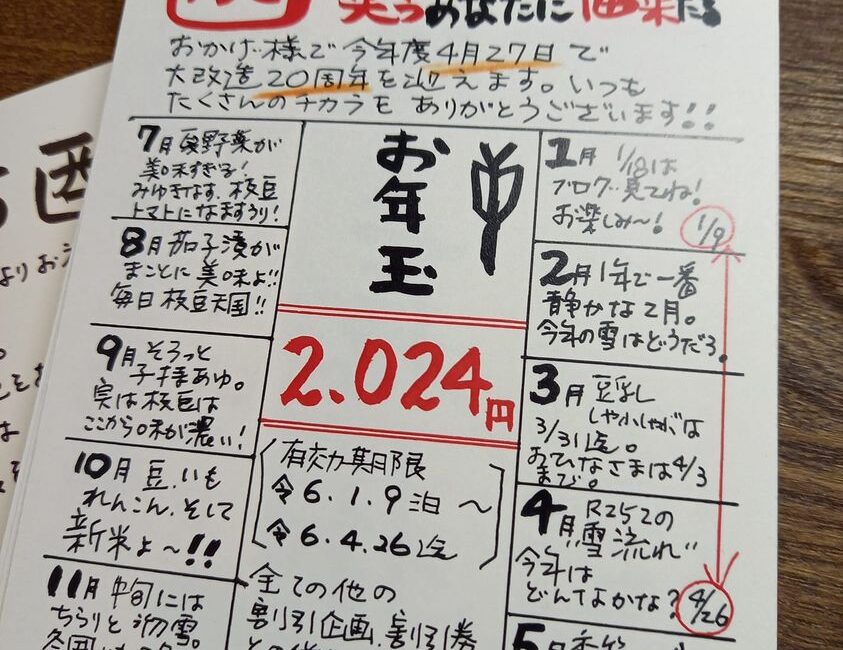 笑うあなたに福来たる
おかげ様で今年度4月27日で
大改造20周年を迎えます。いつも
たくさんのチカラを ありがとうございます!!
7月 夏野菜が
美味すぎる!
みゆきなす、枝豆
トマトになますうり!
8月 茄子漬が
まことに美味よ!!
毎日枝豆天国!!
9月 そろっと
子持あゆ。
実は枝豆は
ここから味が濃い!
10月 豆、いも
れんこん、そして
新米よ〜!!
11月 中旬には
ちらりと初雪。
お年玉
2.024円
有効期限
令6.1.9泊〜
令6.4.26迄
全ての他の
割引企画、割引券
1月 1/18は
ブログ見てね!
お楽しみ〜!
1/9
2月 1年で一番
静かな2月。
今年の雪はどうだろ。
3月 豆乳し
ゃぶしゃぶは
3/31迄。
おひなさまは4/3
まで。
4月 R252の
"雪流れ"
今年は
どんなかな?
4/26
5月
よりお